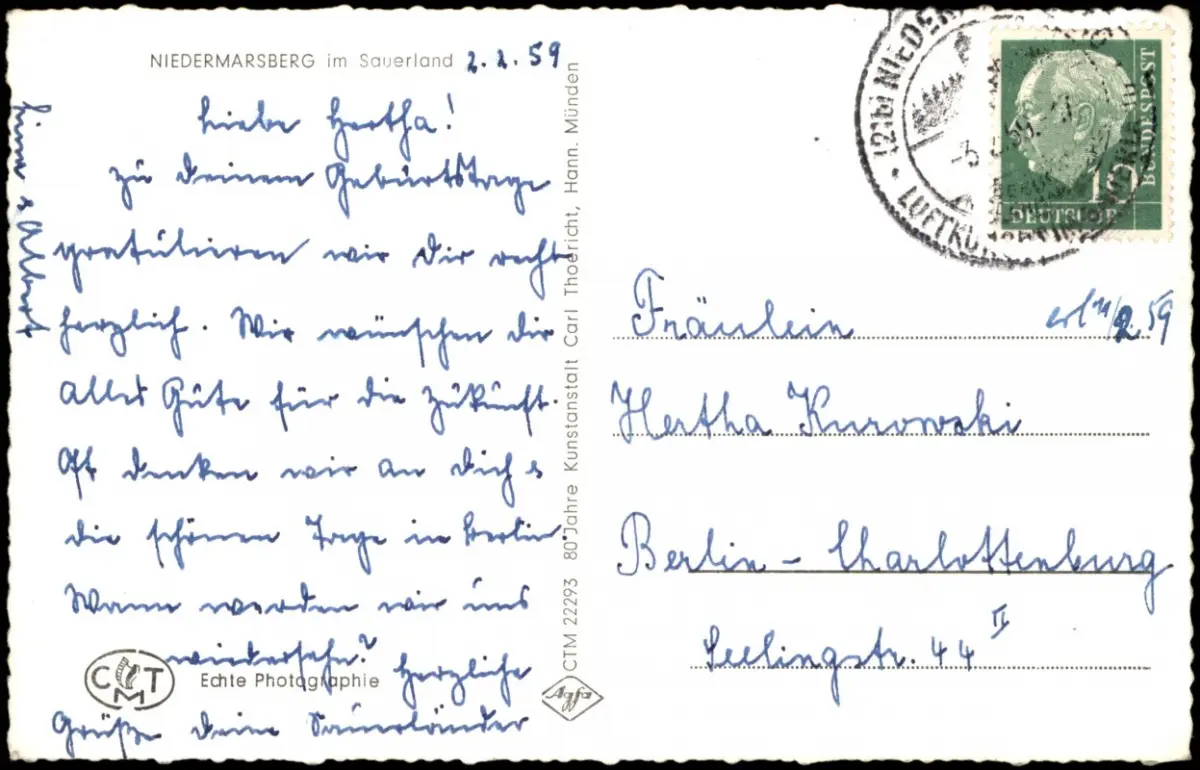 NIEDERMARSBERG im Sauerland 2.2.59
Liebe Hertha!
Zu deinem Geburtstage
gratulieren wir dir recht
herzlich. Wir wünschen dir
alles Gute für die Zukunft.
Oft denken wir an dich &
die schönen Tage in Berlin.
Wann werden wir uns
wiedersehn? Herzliche
Grüße deine Sauerländer
& Albert
CMT
Echte Photographie
CTM 22293 80 Jahre Kunstanstalt Carl Thoericht, Hann. Münden
Agfa
(21b) NIEDER
LUFTKU
DEUTSCHE
BUNDESPOST
10
Fräulein
erl 11/2.59
Hertha Kurowski
Berlin-Charlottenburg
Seelingstr. 44 II